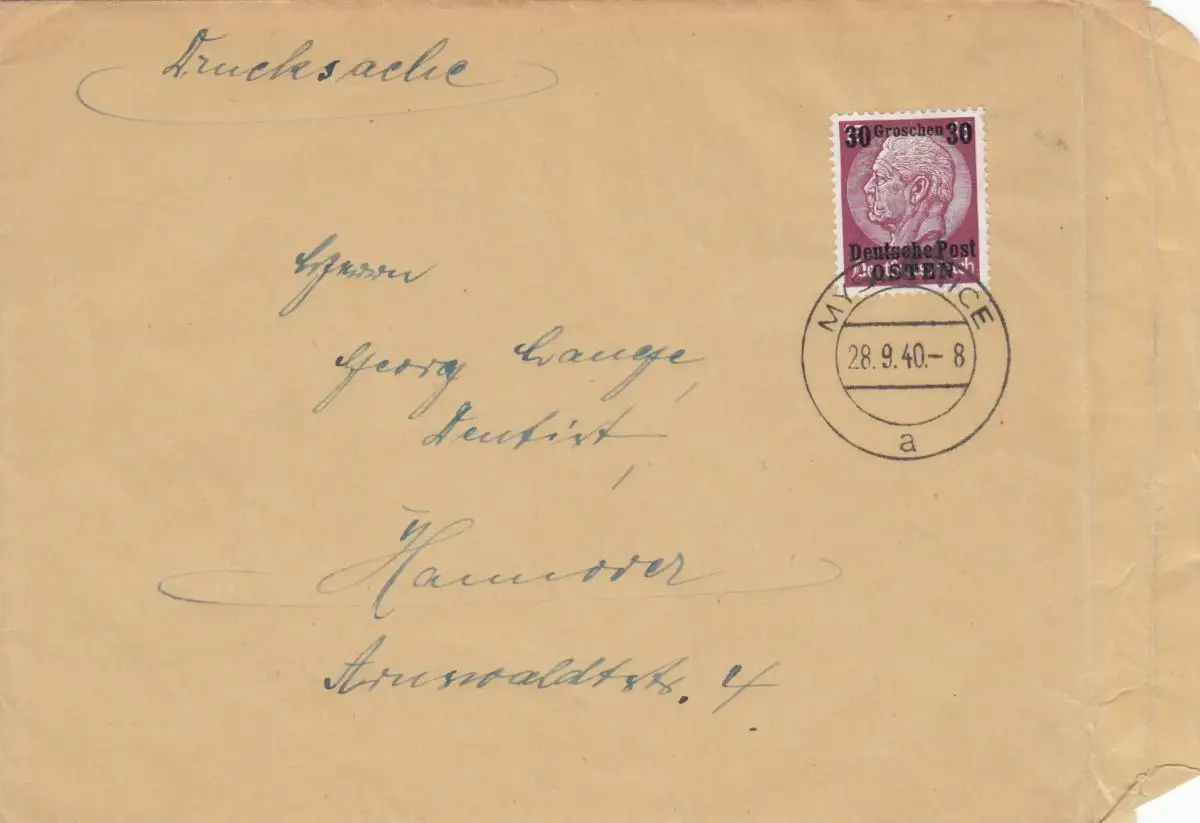 Drucksache
30 Groschen 30
Deutsche Post
OSTEN
28.9.40.-8
a
Herrn
Georg Lange,
Dentist,
Hannover
Arnswaldtstr. 4